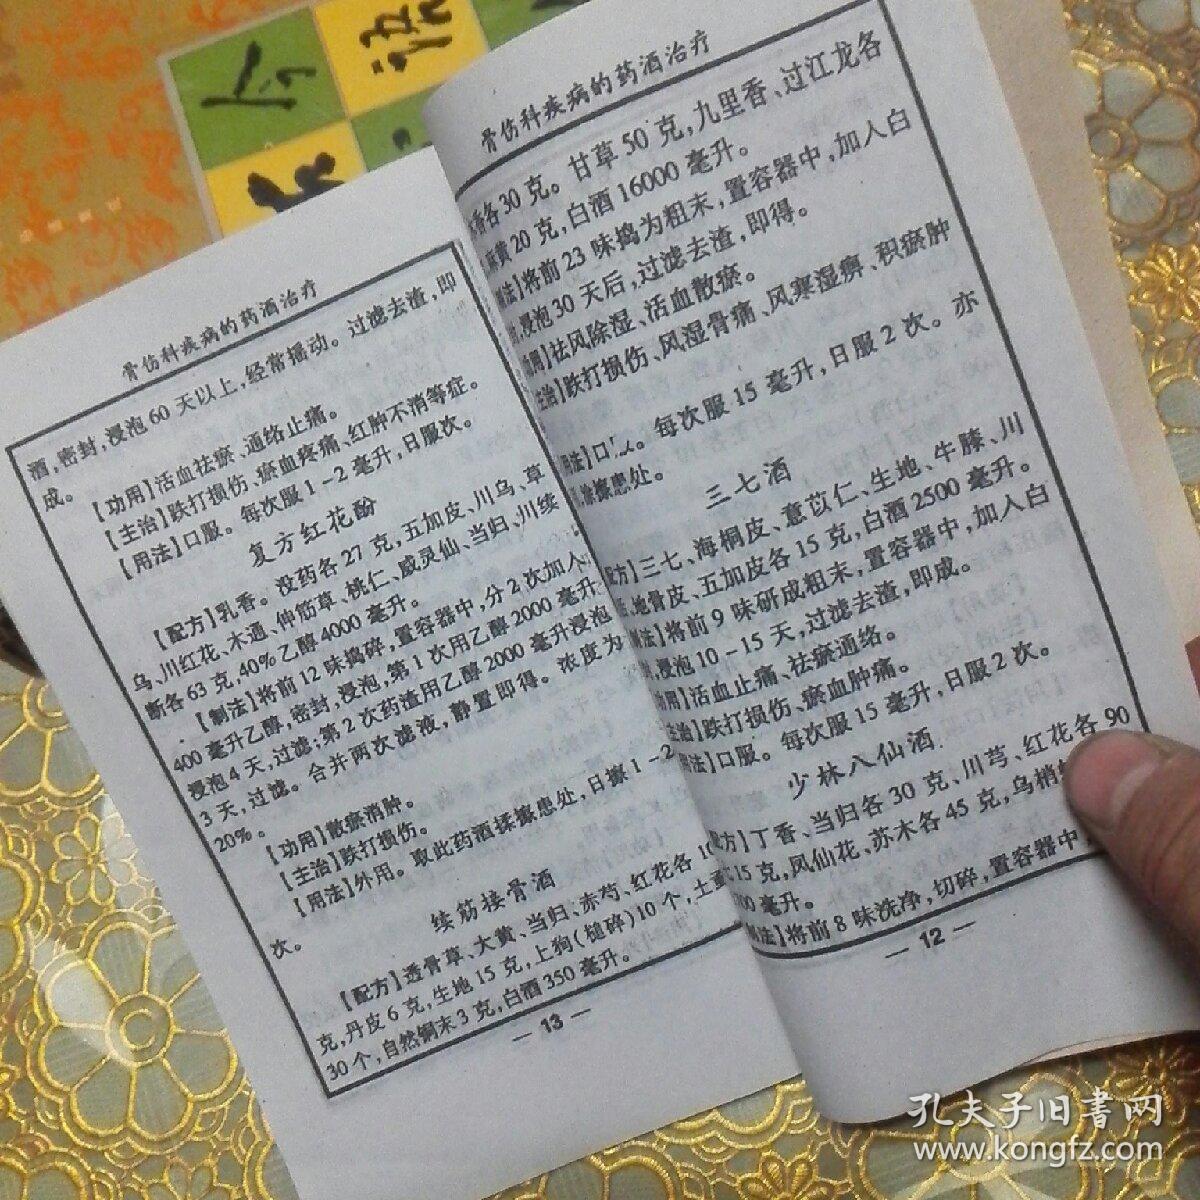 骨伤科疾病的药酒治疗
酒,密封,浸泡60天以上,经常摇动。过滤去渣,即
成。
【功用】活血祛瘀、通络止痛。
【主治】跌打损伤、瘀血疼痛、红肿不消等症。
【用法】口服。每次服1-2毫升,日服次。
复方红花酚
【配方】乳香。没药各27克,五加皮、川乌、草
乌、川红花、木通、伸筋草、桃仁、威灵仙、当归、川续
断各63克,40%乙醇4000毫升。
【制法】将前12味捣碎,置容器中,分2次加入
400毫升乙醇,密封,浸泡,第1次用乙醇2000毫升
浸泡4天,过滤;第2次药渣用乙醇2000毫升浸泡
3天,过滤。合并两次滤液,静置即得。浓度为
20%。
【功用】散瘀消肿。
【主治】跌打损伤。
【用法】外用。取此药酒揉擦患处,日擦1-2
次。
续筋接骨酒
【配方】透骨草、大黄、当归、赤芍、红花各10
克,丹皮6克,生地15克,上狗(槌碎)10个,土
30个,自然铜末3克,白酒350毫升。
— 13 —
骨伤科疾病的药酒治疗
香各30克。甘草50克,九里香、过江龙各
黄20克,白酒16000毫升。
制法】将前23味捣为粗末,置容器中,加入白
浸泡30天后,过滤去渣,即得。
功用】祛风除湿、活血散瘀。
主治】跌打损伤、风湿骨痛、风寒湿痹、积瘀肿
用法】口服。每次服15毫升,日服2次。亦
涂擦患处。
三七酒
配方】三七、海桐皮、意苡仁、生地、牛膝、川
地骨皮、五加皮各15克,白酒2500毫升。
制法】将前9味研成粗末,置容器中,加入白
浸泡10-15天,过滤去渣,即成。
功用】活血止痛、祛瘀通络。
主治】跌打损伤、瘀血肿痛。
用法】口服。每次服15毫升,日服2次。
少林八仙酒
配方】丁香、当归各30克、川芎、红花各90
15克,凤仙花、苏木各45克,乌梢
00毫升。
制法】将前8味洗净,切碎,置容器中
— 12 —
孔夫子旧书网
www.kongfz.com